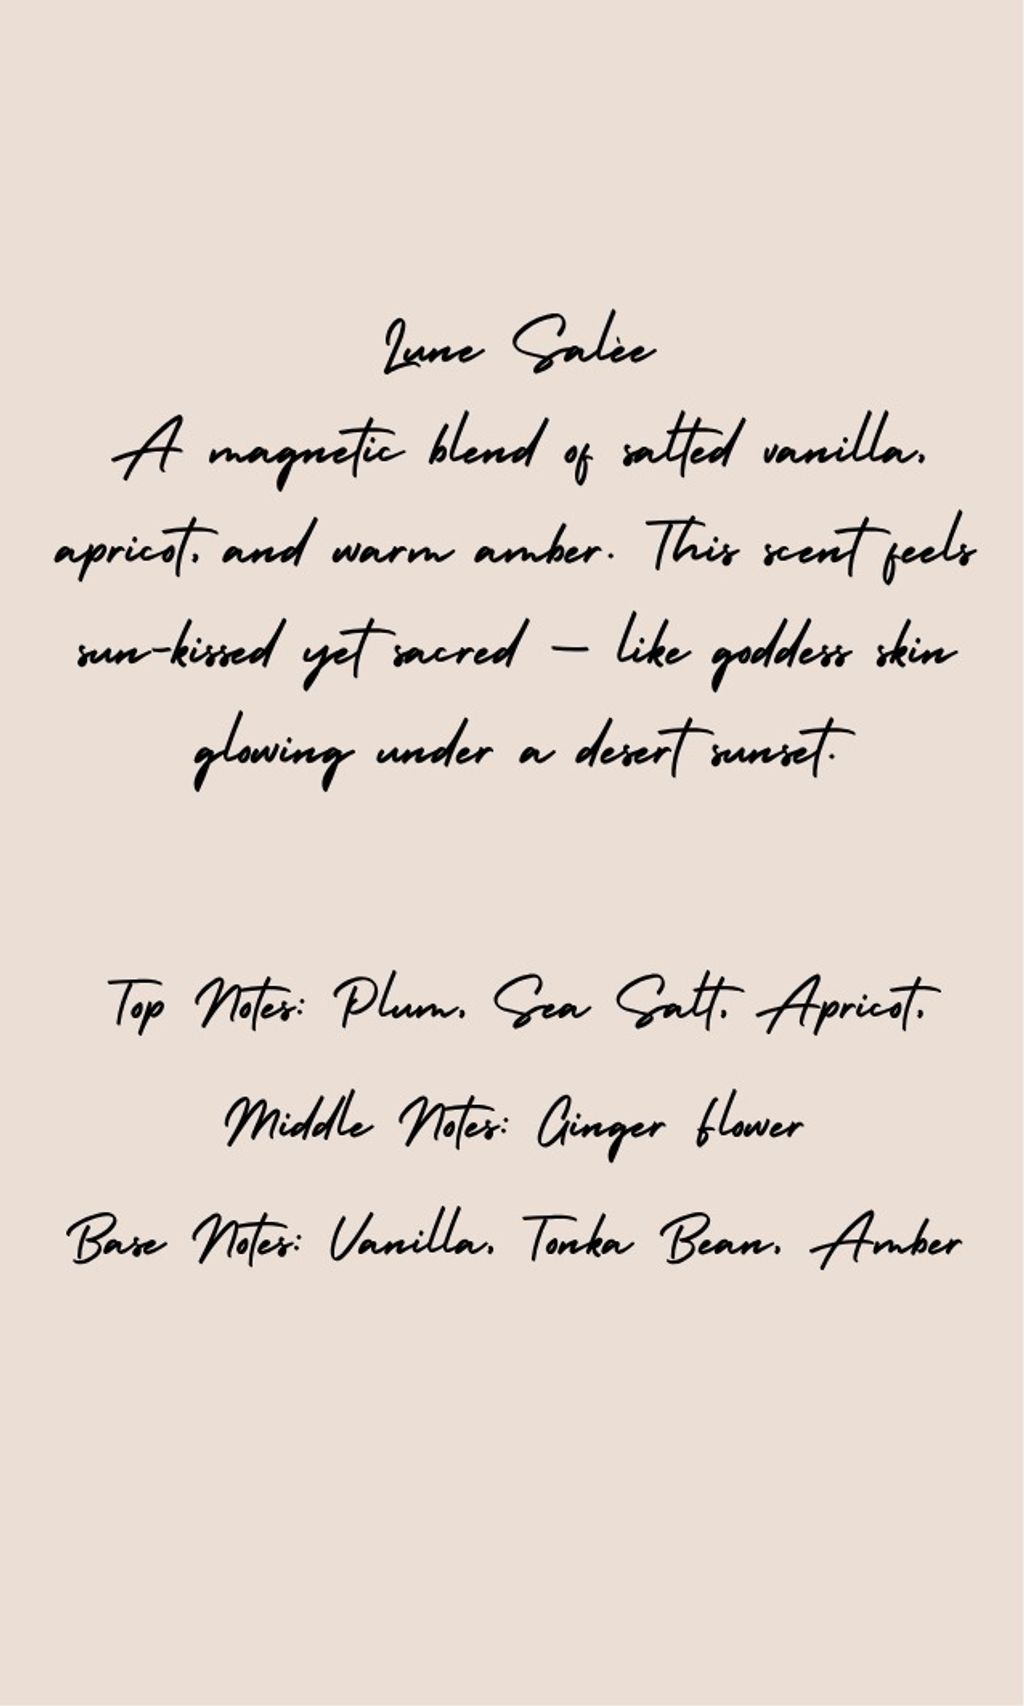 Lune Salèe
A magnetic blend of salted vanilla,
apricot, and warm amber. This scent feels
sun-kissed yet sacred — like goddess skin
glowing under a desert sunset.
Top Notes: Plum, Sea Salt, Apricot,
Middle Notes: Ginger flower
Base Notes: Vanilla, Tonka Bean, Amber